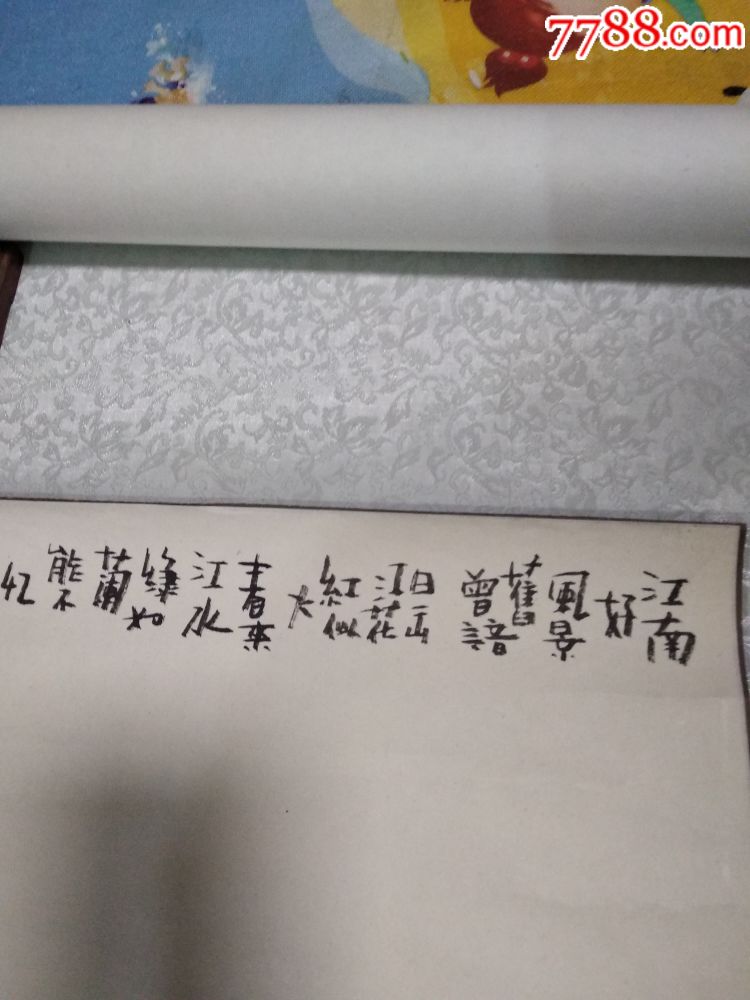 7788.com
江南
好
風景
舊
曾諳
日出
江花
紅似
火
春來
江水
綠如
蘭
能不
忆